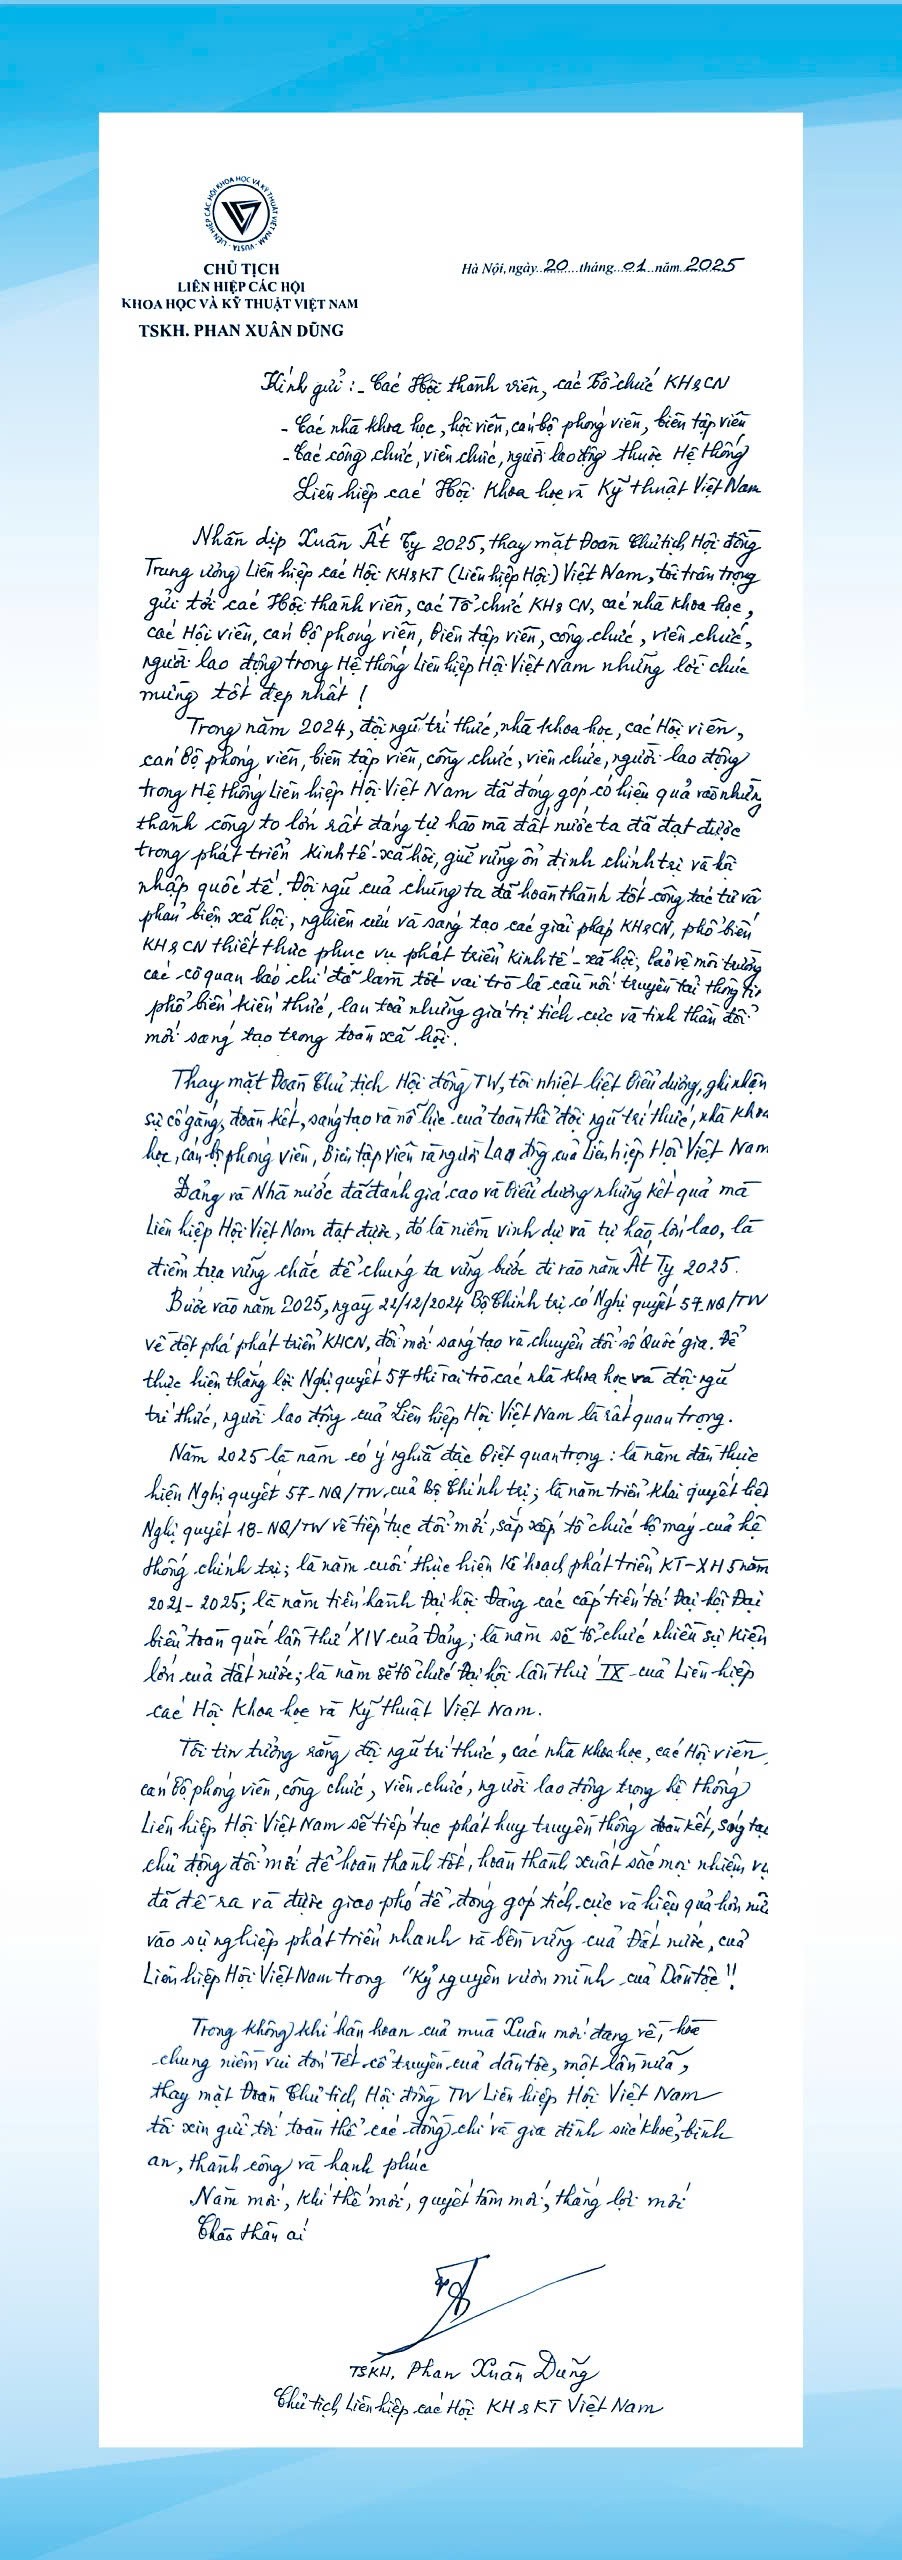 LIÊN HIỆP CÁC HỘI KHOA HỌC VÀ KỸ THUẬT VIỆT NAM - VUSTA -
CHỦ TỊCH
LIÊN HIỆP CÁC HỘI
KHOA HỌC VÀ KỸ THUẬT VIỆT NAM
TSKH. PHAN XUÂN DŨNG
Hà Nội, ngày 20 tháng 01 năm 2025
Kính gửi : - Các Hội thành viên, các Tổ chức KH&CN
- Các nhà khoa học, hội viên, cán bộ phóng viên, biên tập viên
- Các công chức, viên chức, người lao động thuộc Hệ thống
Liên hiệp các Hội Khoa học và Kỹ thuật Việt Nam
Nhân dịp Xuân Ất Tỵ 2025, thay mặt Đoàn Chủ tịch Hội đồng
Trung ương Liên hiệp các Hội KH&KT (Liên hiệp Hội) Việt Nam, tôi trân trọng
gửi tới các Hội thành viên, các Tổ chức KH&CN, các nhà khoa học,
các Hội viên, cán bộ phóng viên, biên tập viên, công chức, viên chức,
người lao động trong Hệ thống Liên hiệp Hội Việt Nam những lời chúc
mừng tốt đẹp nhất !
Trong năm 2024, đội ngũ trí thức, nhà khoa học, các Hội viên,
cán bộ phóng viên, biên tập viên, công chức, viên chức, người lao động
trong Hệ thống Liên hiệp Hội Việt Nam đã đóng góp có hiệu quả vào những
thành công to lớn rất đáng tự hào mà đất nước ta đã đạt được
trong phát triển kinh tế - xã hội, giữ vững ổn định chính trị và hội
nhập quốc tế. Đội ngũ của chúng ta đã hoàn thành tốt công tác tư vấn
phản biện xã hội, nghiên cứu và sáng tạo các giải pháp KH&CN, phổ biến
KH&CN thiết thực phục vụ phát triển kinh tế - xã hội, bảo vệ môi trường
các cơ quan báo chí đã làm tốt vai trò là cầu nối truyền tải thông tin
phổ biến kiến thức, lan toả những giá trị tích cực và tinh thần đổi
mới sáng tạo trong toàn xã hội.
Thay mặt Đoàn Chủ tịch Hội đồng TW, tôi nhiệt liệt biểu dương, ghi nhận
sự cố gắng, đoàn kết, sáng tạo và nỗ lực của toàn thể đội ngũ trí thức, nhà khoa
học, cán bộ phóng viên, biên tập viên và người Lao động của Liên hiệp Hội Việt Nam
Đảng và Nhà nước đã đánh giá cao và biểu dương những kết quả mà
Liên hiệp Hội Việt Nam đạt được, đó là niềm vinh dự và tự hào lớn lao, là
điểm tựa vững chắc để chúng ta vững bước đi vào năm Ất Tỵ 2025.
Bước vào năm 2025, ngày 22/12/2024 Bộ Chính trị có Nghị quyết 57-NQ/TW
về đột phá phát triển KHCN, đổi mới sáng tạo và chuyển đổi số Quốc gia. Để
thực hiện thắng lợi Nghị quyết 57 thì vai trò các nhà khoa học và đội ngũ
trí thức, người lao động của Liên hiệp Hội Việt Nam là rất quan trọng.
Năm 2025 là năm có ý nghĩa đặc biệt quan trọng : là năm đầu thực
hiện Nghị quyết 57-NQ/TW của Bộ Chính trị; là năm triển khai quyết liệt
Nghị quyết 18-NQ/TW về tiếp tục đổi mới, sắp xếp tổ chức bộ máy của hệ
thống chính trị; là năm cuối thực hiện Kế hoạch phát triển KT-XH 5 năm
2021-2025; là năm tiến hành Đại hội Đảng các cấp tiến tới Đại hội Đại
biểu toàn quốc lần thứ XIV của Đảng; là năm sẽ tổ chức nhiều sự kiện
lớn của đất nước; là năm sẽ tổ chức Đại hội lần thứ IX của Liên hiệp
các Hội Khoa học và Kỹ thuật Việt Nam.
Tôi tin tưởng rằng đội ngũ trí thức, các nhà khoa học, các Hội viên,
cán bộ phóng viên, công chức, viên chức, người lao động trong hệ thống
Liên hiệp Hội Việt Nam sẽ tiếp tục phát huy truyền thống đoàn kết, sáng tạo
chủ động đổi mới để hoàn thành tốt, hoàn thành xuất sắc mọi nhiệm vụ
đã đề ra và được giao phó để đóng góp tích cực và hiệu quả hơn nữa
vào sự nghiệp phát triển nhanh và bền vững của Đất nước, của
Liên hiệp Hội Việt Nam trong "Kỷ nguyên vươn mình của Dân tộc"!
Trong không khí hân hoan của mùa Xuân mới đang về, hoà
chung niềm vui đón Tết cổ truyền của dân tộc, một lần nữa,
thay mặt Đoàn Chủ tịch Hội đồng TW Liên hiệp Hội Việt Nam
tôi xin gửi tới toàn thể các đồng chí và gia đình sức khoẻ, bình
an, thành công và hạnh phúc
Năm mới, khí thế mới, quyết tâm mới, thắng lợi mới
Chào thân ái
TSKH. Phan Xuân Dũng
Chủ tịch Liên hiệp các Hội KH&KT Việt Nam